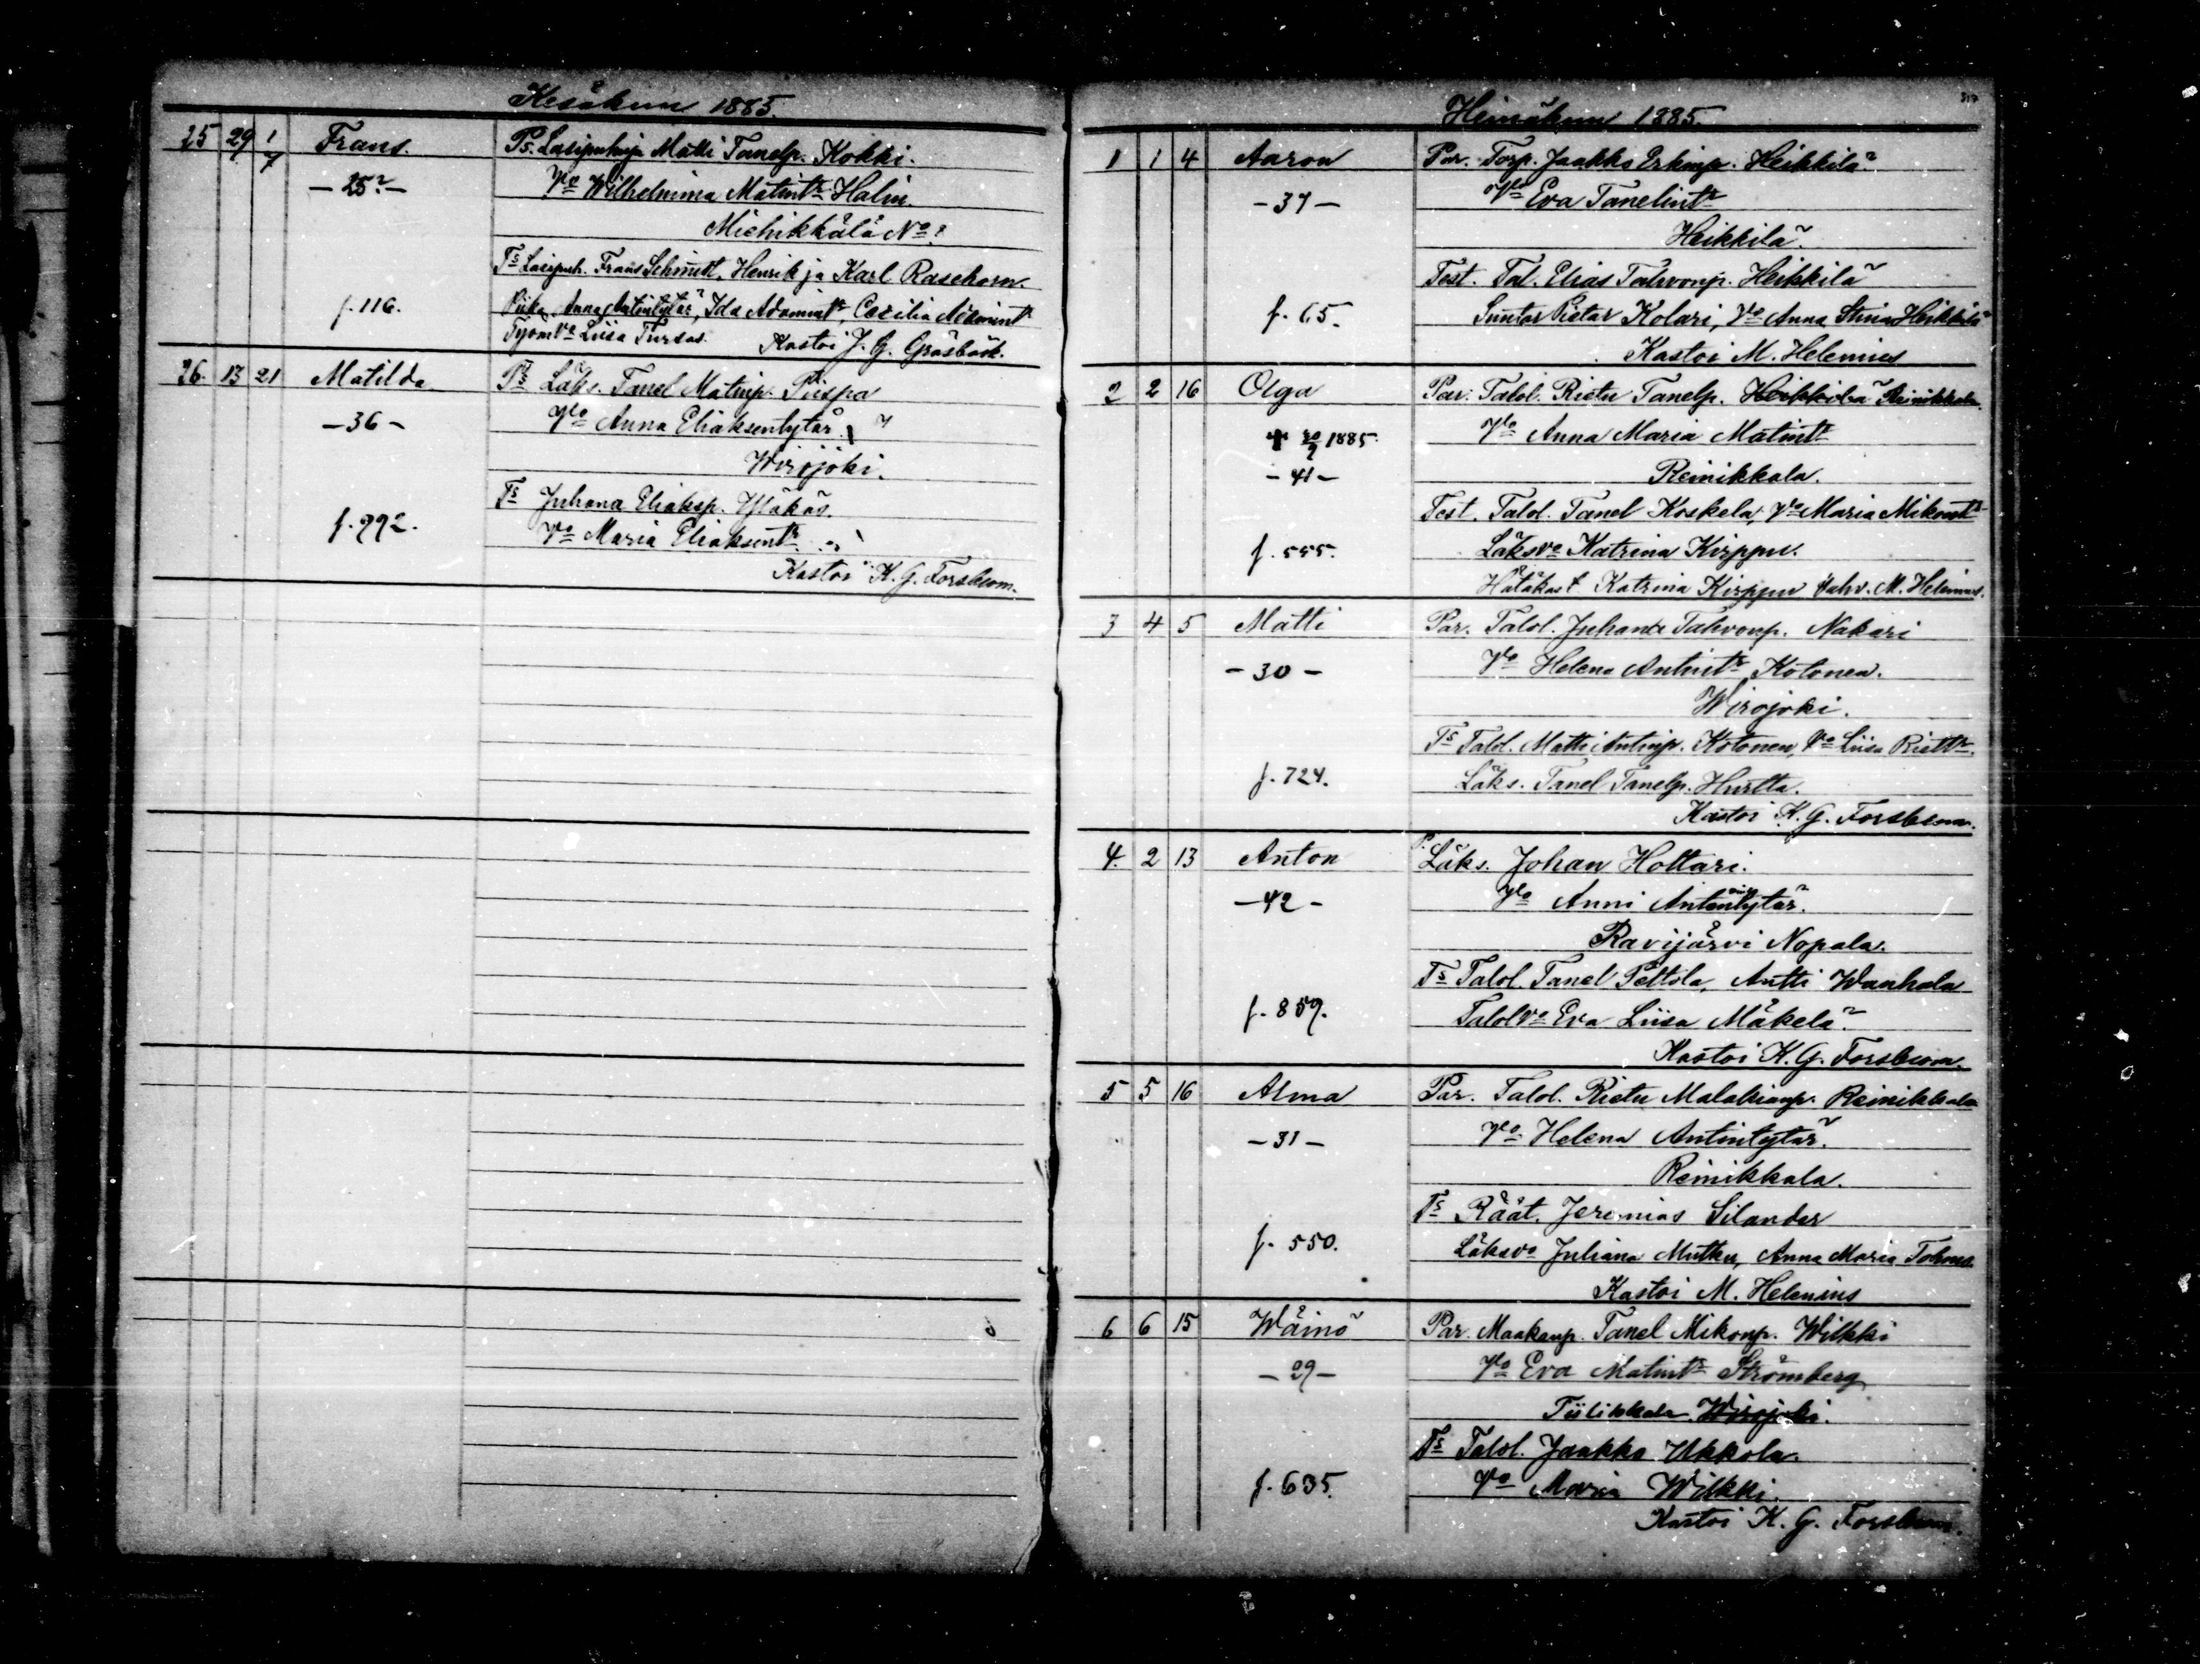 Kesäkuu 1885.
25 29 1/7 Frans. Ps. Lasipuhuja Matti Tanelp. Kokki.
—25?— Vo Wilhelmina Matintr Halin.
Miehikkälä No 2
Ts Lasipuh. Frans Schmidt, Henrik ja Karl Raschorn.
f. 116. Piika Anna Antintytär, Ida Adamintr, Cecilia Adamintr
Työm Vo Liisa Tursas. Kastoi J. G. Gråsbäck.
26. 13 21 Matilda Ps Läks. Tanel Matinp. Piispa
—36— Vo Anna Eliaksentytär.
Wirojoki.
Ts Juhana Eliaksp. Yläkäs.
f. 992. Vo Maria Eliaksentr
Kastoi K. G. Forsblom.
317
Heinäkuu 1885.
1 1 4 Aaron Par. Torp. Jaakko Erkinp. Heikkilä
—37— Vo Eva Tanelintr
Heikkilä.
Test. Tal. Elias Tahvonp. Heikkilä
f. 65. Suntar Pietar Kolari, Vo Anna Stina Heikkilä
Kastoi M. Helenius
2 2 16 Olga Par. Talol. Rietu Tanelp. Heikkilä Reinikkala.
† 20/9 1885. Vo Anna Maria Matintr
—41— Reinikkala.
Test. Talol. Tanel Koskela, Vo Maria Mikontr
f. 555. Läksvo Katrina Kirppu.
Hätäkast Katrina Kirppu Vahv. M. Helenius.
3 4 5 Matti Par. Talol. Juhana Tahvonp. Nakari
—30— Vo Helena Antintr Kotonen.
Wirojoki.
Ts Talol. Matti Antinp. Kotonen, Vo Liisa Riettr
f. 724. Läks. Tanel Tanelp. Hurtta.
Kastoi K. G. Forsblom.
4. 2 13 Anton P. Läks. Johan Hottari.
—42— Vo Anni Antintytär.
Ravijärvi Nopala.
Ts Talol. Tanel Peltola, Antti Wanhala
f. 859. Talolvo Eva Liisa Mäkelä
Kastoi K. G. Forsblom.
5 5 16 Alma Par. Talol. Rietu Malakianp. Reinikkala
—31— Vo Helena Antintytär.
Reinikkala.
Ts Räät. Jeremias Silander
f. 550. Läksvo Juliana Mutku, Anna Maria
Kastoi M. Helenius
6 6 15 Wäinö Par. Maakaup. Tanel Mikonp. Wilkki
—29— Vo Eva Matintr Strömberg
Tiilikkala Wirojoki.
Ts Talol. Jaakko Ukkola.
f. 635. Vo Maria Wilkki.
Kastoi K. G. Forsblom.